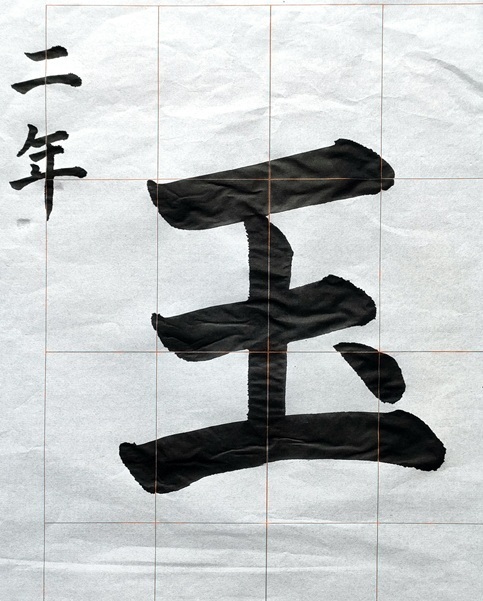 玉
二年